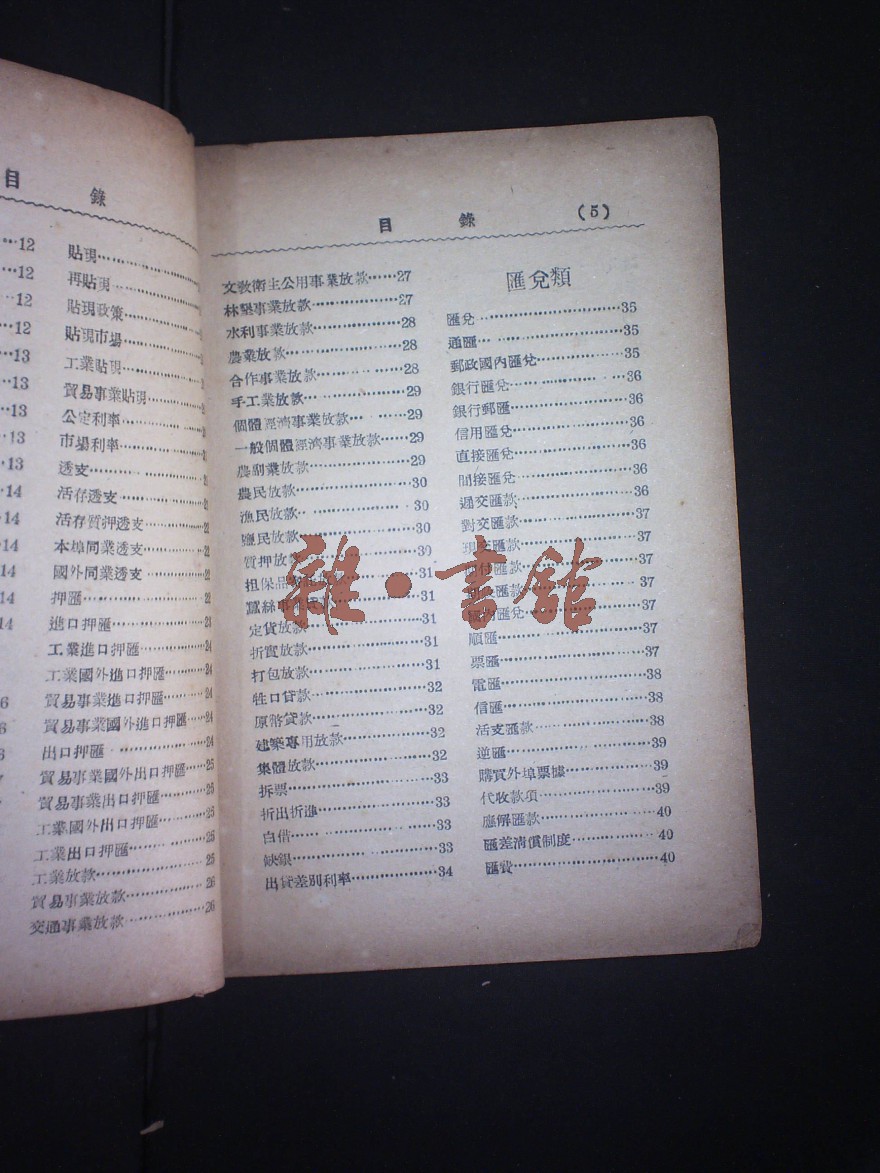 目 錄
12
12
12
12
13
13
13
13
13
14
14
14
14
14
貼現
再貼現
貼現政策
貼現市場
工業貼現
貿易事業貼現
公定利率
市場利率
透支
活存透支
活存質押透支
本埠同業透支
國外同業透支
押匯
進口押匯……23
工業進口押匯……24
工業國外進口押匯……24
貿易事業進口押匯……24
貿易事業國外進口押匯……24
出口押匯……24
貿易事業國外出口押匯……25
貿易事業出口押匯……25
工業國外出口押匯……25
工業出口押匯……25
工業放款……25
貿易事業放款……26
交通事業放款……26
目 錄 (5)
文敎衛生公用事業放款……27
林墾事業放款……27
水利事業放款……28
農業放款……28
合作事業放款……28
手工業放款……29
個體經濟事業放款……29
一般個體經濟事業放款……29
農副業放款……29
農民放款……30
漁民放款……30
鹽民放款……30
質押放款……30
担保品放款……31
蠶絲事業放款……31
定貨放款……31
折實放款……31
打包放款……31
牲口貸款……32
原幣貸款……32
建築專用放款……32
集體放款……32
拆票……33
折出折進……33
白借……33
缺銀……33
出貸差別利率……34
匯兌類
匯兌……35
通匯……35
郵政國內匯兌……35
銀行匯兌……36
銀行郵匯……36
信用匯兌……36
直接匯兌……36
間接匯兌……36
遞交匯款……36
對交匯款……37
現交匯款……37
匯款……37
匯兌……37
順匯……37
票匯……37
電匯……38
信匯……38
活支匯款……38
逆匯……39
購買外埠票據……39
代收款項……39
應解匯款……40
匯差清償制度……40
匯費……40
雜·書館